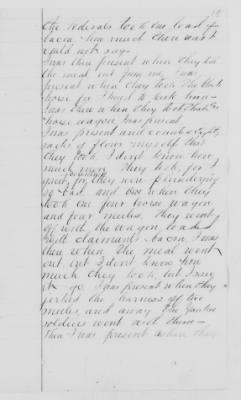 the Federals took one load of
bacon. How much there was I
could not say.
I was then present when they
the meal out from me. I was
present when they took the
horse for I used to
I was there when they took that
horse wagon. I was present
I was present and counted eighty
sacks of flour myself that
they took. I don't know how
much more they took, for I
for they were threatening
so bad, and was when they
took one four horse wagon
and four mules. They went
off with the wagon loaded
with claimants bacon. I was
there when the meal went
out but I don't know how
much they took, but I saw
it go. I was present when they
the harness of two
mules, and away the Yankee
soldiers went with them—
Then I was present when they